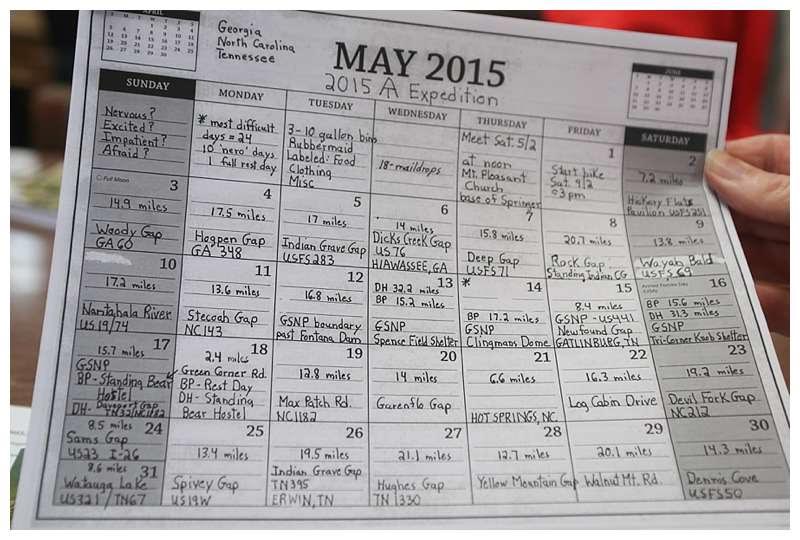 APRIL
Georgia
North Carolina
Tennessee
MAY 2015
2015 A Expedition
JUNE
SUNDAY
MONDAY
TUESDAY
WEDNESDAY
THURSDAY
FRIDAY
SATURDAY
Nervous?
Excited?
Impatient?
Afraid?
* most difficult
days = 24
10 'nero' days
1 full rest day
3-10 gallon bins
Rubbermaid
Labeled: Food
Clothing
Misc
18-maildrops
Meet Sat. 5/2
at noon
Mt. Pleasant
Church
base of Springer
1
Start hike
Sat.
@3pm
2
7.2 miles
Hickory Flats
Pavilion USFS 251
Full Moon
3
14.9 miles
Woody Gap
GA 60
4
17.5 miles
Hogpen Gap
GA 348
5
17 miles
Indian Grave Gap
USFS 283
6
14 miles
Dicks Creek Gap
US 76
HIAWASSEE, GA
7
15.8 miles
Deep Gap
USFS 71
8
20.7 miles
Rock Gap
Standing Indian CG
9
13.8 miles
Wayah Bald
USFS 69
10
17.2 miles
Nantahala River
US 19/74
11
13.6 miles
Stecoah Gap
NC 143
12
16.8 miles
GSNP boundary
past Fontana Dam
13
DH 32.2 miles
BP 15.2 miles
GSNP
Spence Field Shelter
* 14
BP 17.2 miles
GSNP
Clingmans Dome
15
8.4 miles
GSNP - US 441
Newfound Gap
GATLINBURG, TN
Armed Forces Day
16
BP 15.6 miles
DH 31.3 miles
GSNP
Tri-Corner Knob Shelter
17
15.7 miles
GSNP
BP - Standing Bear
Hostel
DH - Davenport Gap
TN 32/NC 1182
18
2.4 miles
Green Corner Rd.
BP - Rest Day
DH - Standing
Bear Hostel
19
12.8 miles
Max Patch Rd.
NC 1182
20
14 miles
Garenflo Gap
21
6.6 miles
HOT SPRINGS, NC
22
16.3 miles
Log Cabin Drive
23
19.2 miles
Devil Fork Gap
NC 212
8.5 miles 24
Sams Gap
US 23 I-26
25
13.4 miles
Spivey Gap
US 19W
26
19.5 miles
Indian Grave Gap
TN 395
ERWIN, TN
27
21.1 miles
Hughes Gap
TN 1330
28
12.7 miles
Yellow Mountain Gap
29
20.1 miles
Walnut Mt. Rd.
30
14.3 miles
Dennis Cove
USFS 50
8.6 miles 31
Watauga Lake
US 321 / TN 67